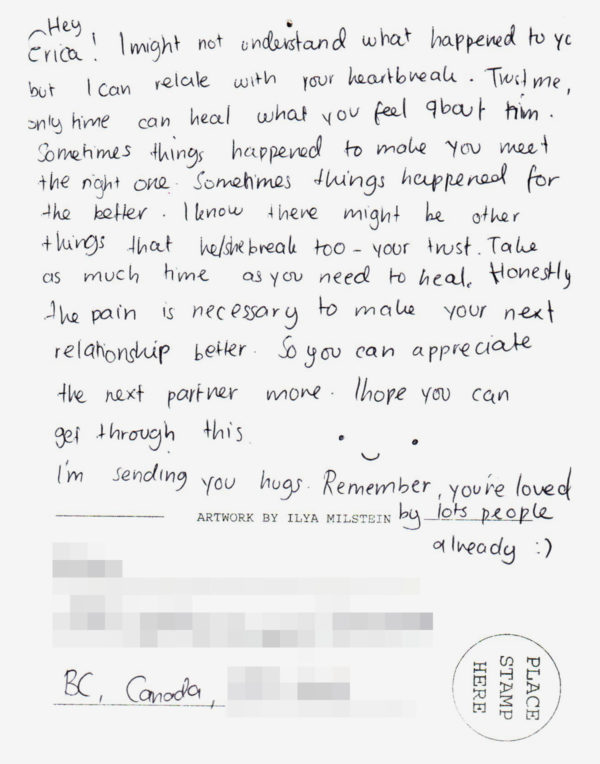 Hey
Erica! I might not understand what happened to yo
but I can relate with your heartbreak. Trust me,
only time can heal what you feel about him.
Sometimes things happened to make you meet
the right one. Sometimes things happened for
the better. I know there might be other
things that he/she break too - your trust. Take
as much time as you need to heal. Honestly
the pain is necessary to make your next
relationship better. So you can appreciate
the next partner more. I hope you can
get through this.
I'm sending you hugs. Remember, you're loved
ARTWORK BY ILYA MILSTEIN by lots people
already :)
BC, Canada,
PLACE
STAMP
HERE